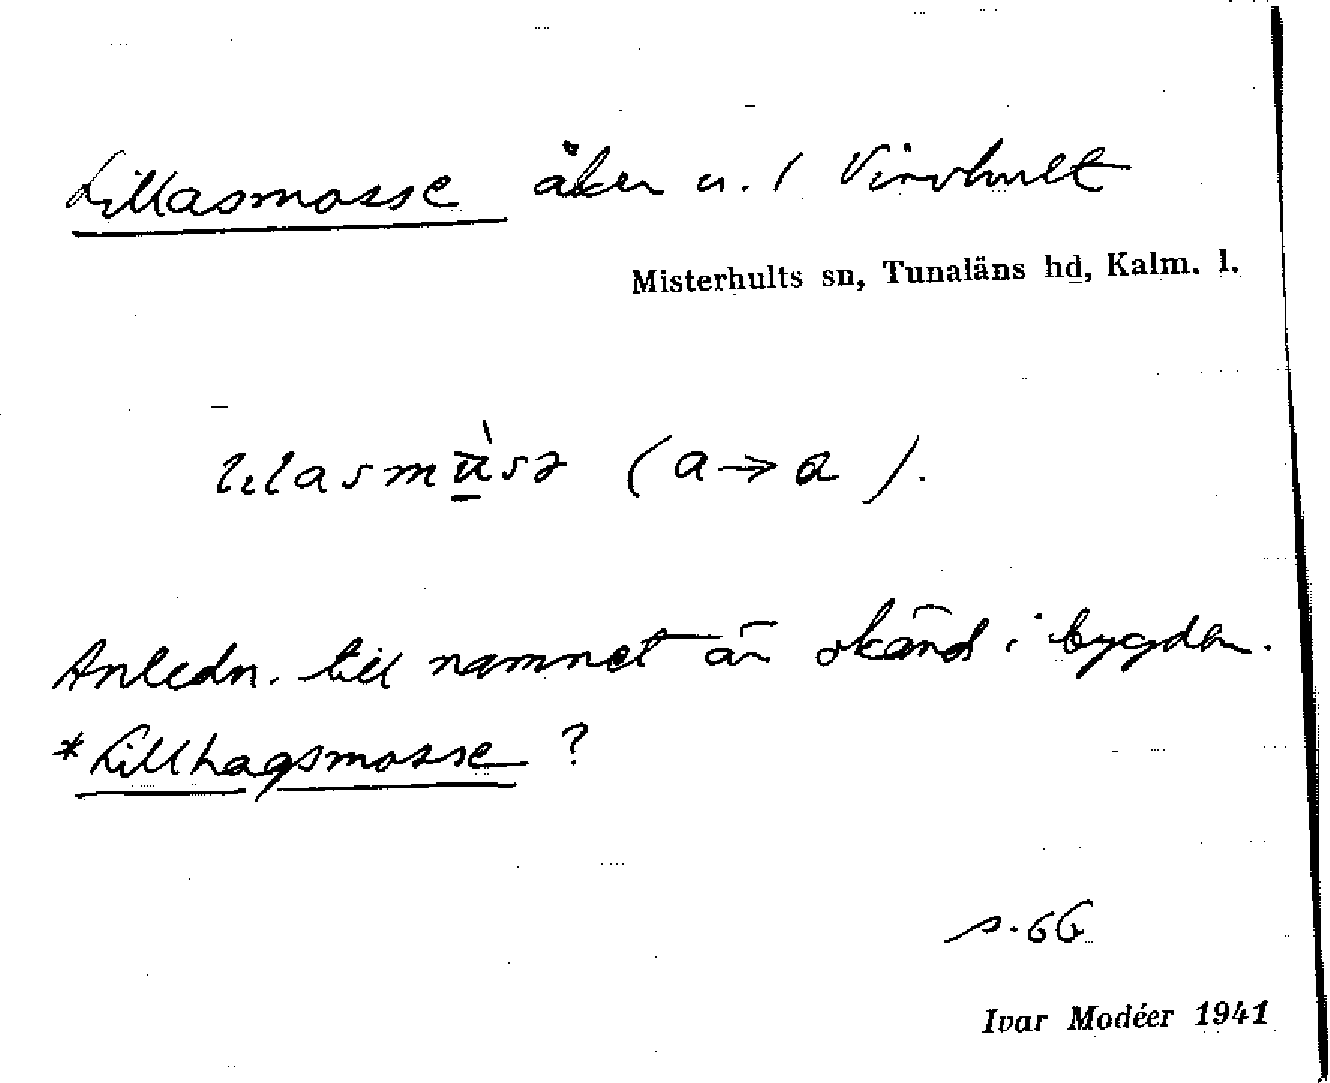 Lillasmosse åker u. / Virvhult
Misterhults sn, Tunaläns hd, Kalm. l.
(a→ɑ).
Anledn. till namnet är okänd i bygden.
*Lillhagsmosse ?
s. 66
Ivar Modéer 1941